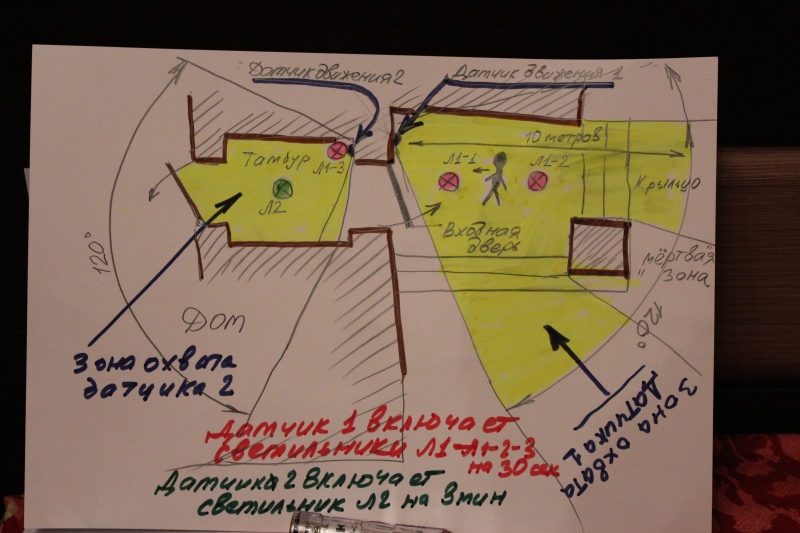 Датчик движения 2
Датчик движения 1
10 метров
Тамбур
Л1-3
Л1-1
Л1-2
Л2
Крыльцо
Входная
дверь
мёртвая
зона
120°
120°
Дом
Зона охвата
датчика 2
Зона охвата
Датчика 1
Датчик 1 включает
светильники Л1-Л1-2-3
на 30 сек
Датчика 2 включает
светильник Л2 на 3 мин